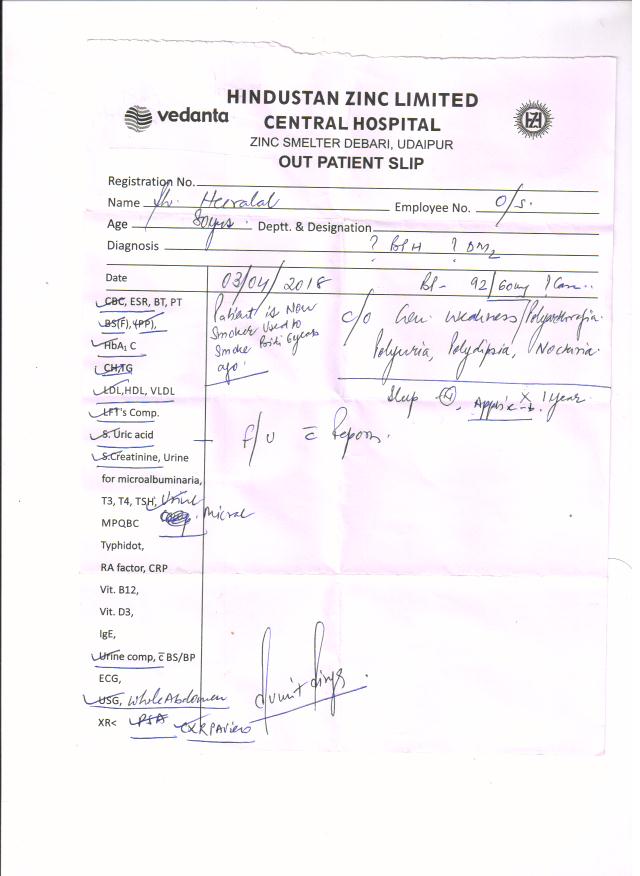 vedanta
HINDUSTAN ZINC LIMITED
CENTRAL HOSPITAL
ZINC SMELTER DEBARI, UDAIPUR
OUT PATIENT SLIP
HZL
Registration No.
Name Heeralal Employee No. O/S.
Age 80yrs. Deptt. & Designation
Diagnosis ? BPH ? DM2
Date 03/04/2018 BP- 92/60
CBC, ESR, BT, PT
BS(F), (PP),
HbA1C
CH,TG
LDL,HDL, VLDL
LFT's Comp.
S. Uric acid
S.Creatinine, Urine
for microalbuminaria,
T3, T4, TSH, Urine
MPQBC Micral
Typhidot,
RA factor, CRP
Vit. B12,
Vit. D3,
IgE,
Urine comp, c̅ BS/BP
ECG,
USG, Whole Abdomen
XR< PSA CXR PA View
Patient is Non
Smoker Used to
Smoke 6 years
ago.
c/o Gen. Weakness/
Polyuria, Polydipsia, Nocturia.
Sleep (N), Appetite ↓ x 1 year.
f/u c̅ Reports.